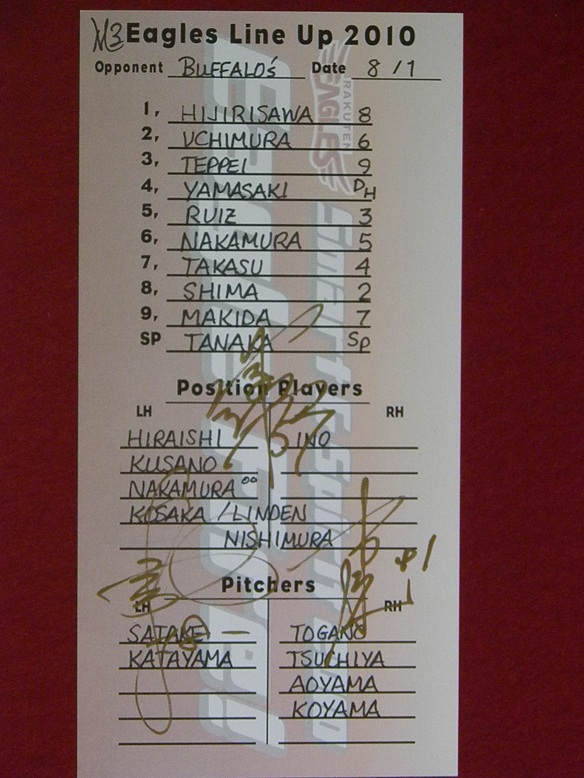 M3 Eagles Line Up 2010
Opponent BUFFALO's Date 8 / 7
1, HIJIRISAWA 8
2, UCHIMURA 6
3, TEPPEI 9
4, YAMASAKI DH
5, RUIZ 3
6, NAKAMURA 5
7, TAKASU 4
8, SHIMA 2
9, MAKIDA 7
SP TANAKA SP
Position Players
LH RH
HIRAISHI INO
KUSANO
NAKAMURA 00
KOSAKA / LINDEN
NISHIMURA
Pitchers
LH RH
SATAKE TOGANO
KATAYAMA TSUCHIYA
AOYAMA
KOYAMA
RAKUTEN
EAGLES